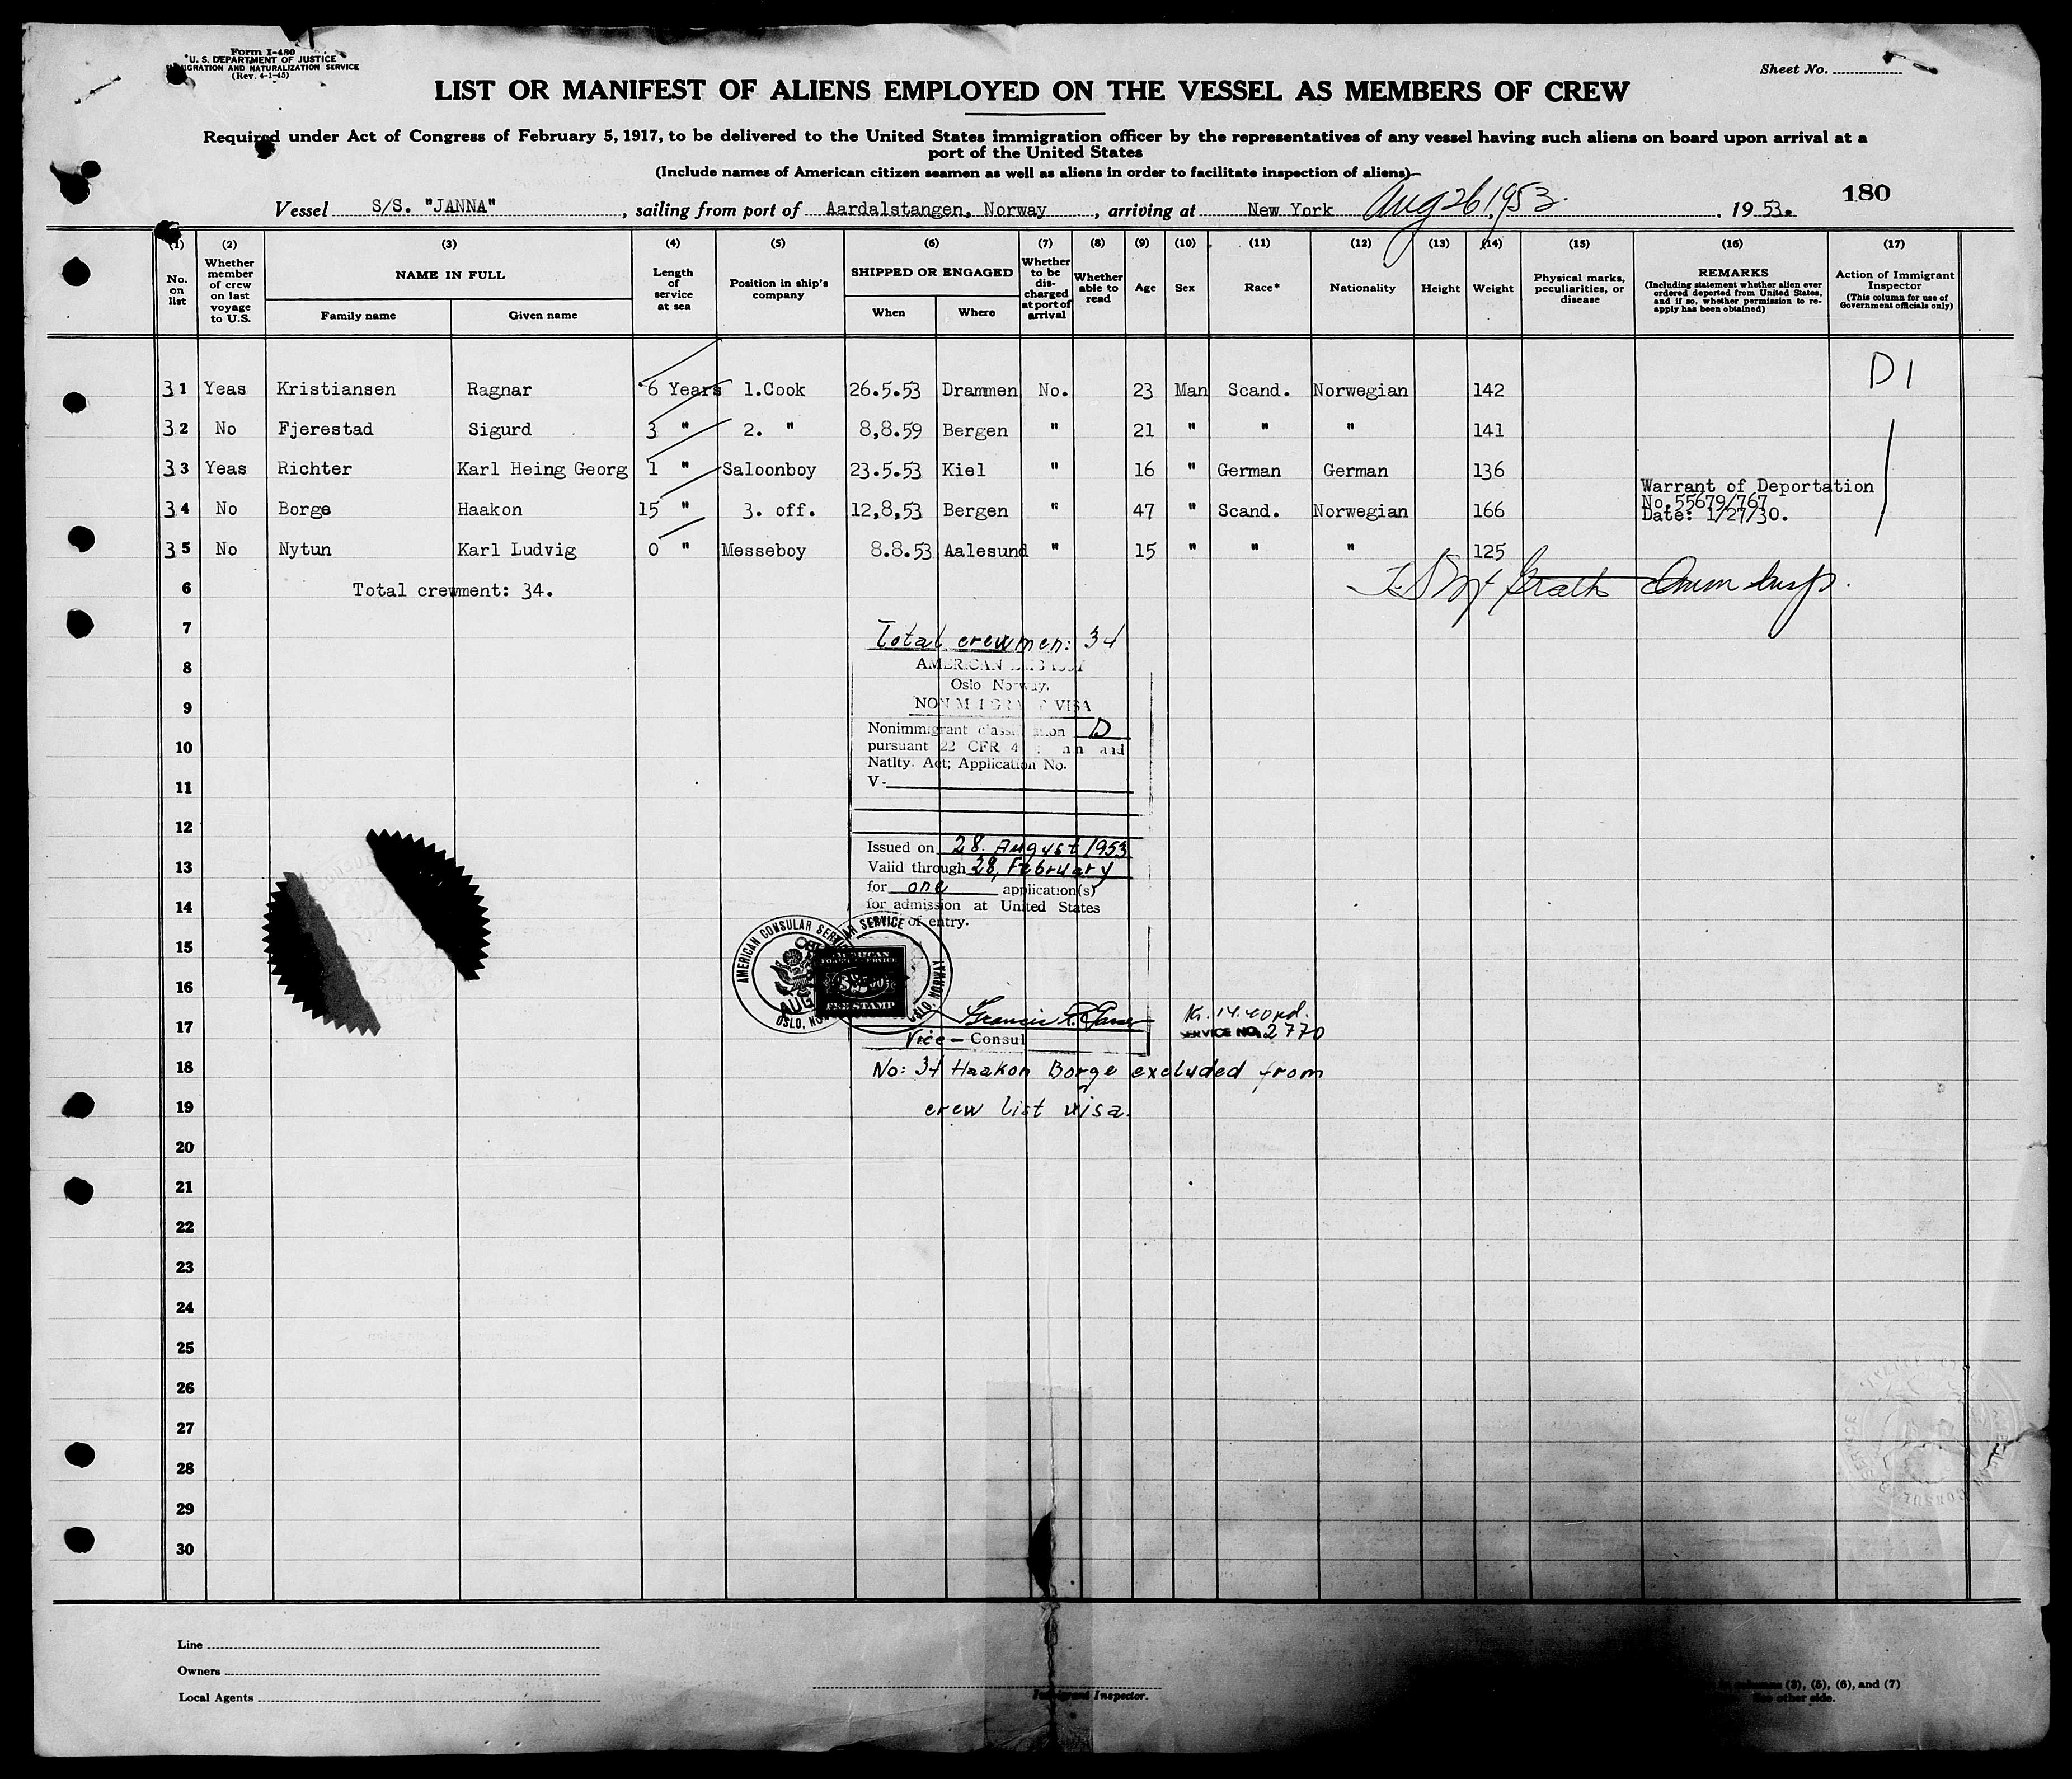 Form I-480
U. S. DEPARTMENT OF JUSTICE
IGRATION AND NATURALIZATION SERVICE
(Rev. 4-1-45)
Sheet No.
LIST OR MANIFEST OF ALIENS EMPLOYED ON THE VESSEL AS MEMBERS OF CREW
Required under Act of Congress of February 5, 1917, to be delivered to the United States immigration officer by the representatives of any vessel having such aliens on board upon arrival at a
port of the United States
(Include names of American citizen seamen as well as aliens in order to facilitate inspection of aliens)
180
Vessel S/S. "JANNA", sailing from port of Aardalstangen, Norway, arriving at New York Aug 26, 1953. , 19 53.
(1) (2) (3) (4) (5) (6) (7) (8) (9) (10) (11) (12) (13) (14) (15) (16) (17)
No. on list
Whether member of crew on last voyage to U.S.
NAME IN FULL
Family name Given name
Length of service at sea
Position in ship's company
SHIPPED OR ENGAGED
When Where
Whether to be discharged at port of arrival
Whether able to read
Age
Sex
Race*
Nationality
Height
Weight
Physical marks, peculiarities, or disease
REMARKS
(Including statement whether alien ever ordered deported from United States, and if so, whether permission to re-apply has been obtained)
Action of Immigrant Inspector
(This column for use of Government officials only)
D1
31 Yeas Kristiansen Ragnar 6 Years 1.Cook 26.5.53 Drammen No. 23 Man Scand. Norwegian 142
32 No Fjerestad Sigurd 3 " 2. " 8,8.59 Bergen " 21 " " " 141
33 Yeas Richter Karl Heing Georg 1 " Saloonboy 23.5.53 Kiel " 16 " German German 136
34 No Borge Haakon 15 " 3. off. 12,8,53 Bergen " 47 " Scand. Norwegian 166
Warrant of Deportation
No.55679/767
Date: 1/27/30.
35 No Nytun Karl Ludvig 0 " Messeboy 8.8.53 Aalesund " 15 " " " 125
6 Total crewment: 34.
7
Total crewmen: 34
8
AMERICAN
Oslo Norway.
9
VISA
Nonimmigrant D
10
pursuant 22 CFR 4
Natlty. Act; Application No.
11
V-
12
Issued on 28. August 1953
13
Valid through 28, February
for one application(s)
14
for admission at United States
of entry.
15
AMERICAN CONSULAR SERVICE
OSLO, NORWAY
AUG
16
FEE STAMP
Kr. 14.40 pd.
17
SERVICE NO. 2770
Vice - Consul
18
No: 34 Haakon Borge excluded from
19
crew list visa.
20
21
22
23
24
25
26
27
28
29
30
Line
Owners
Local Agents
Immigrant Inspector.
columns (3), (5), (6), and (7)
See other side.